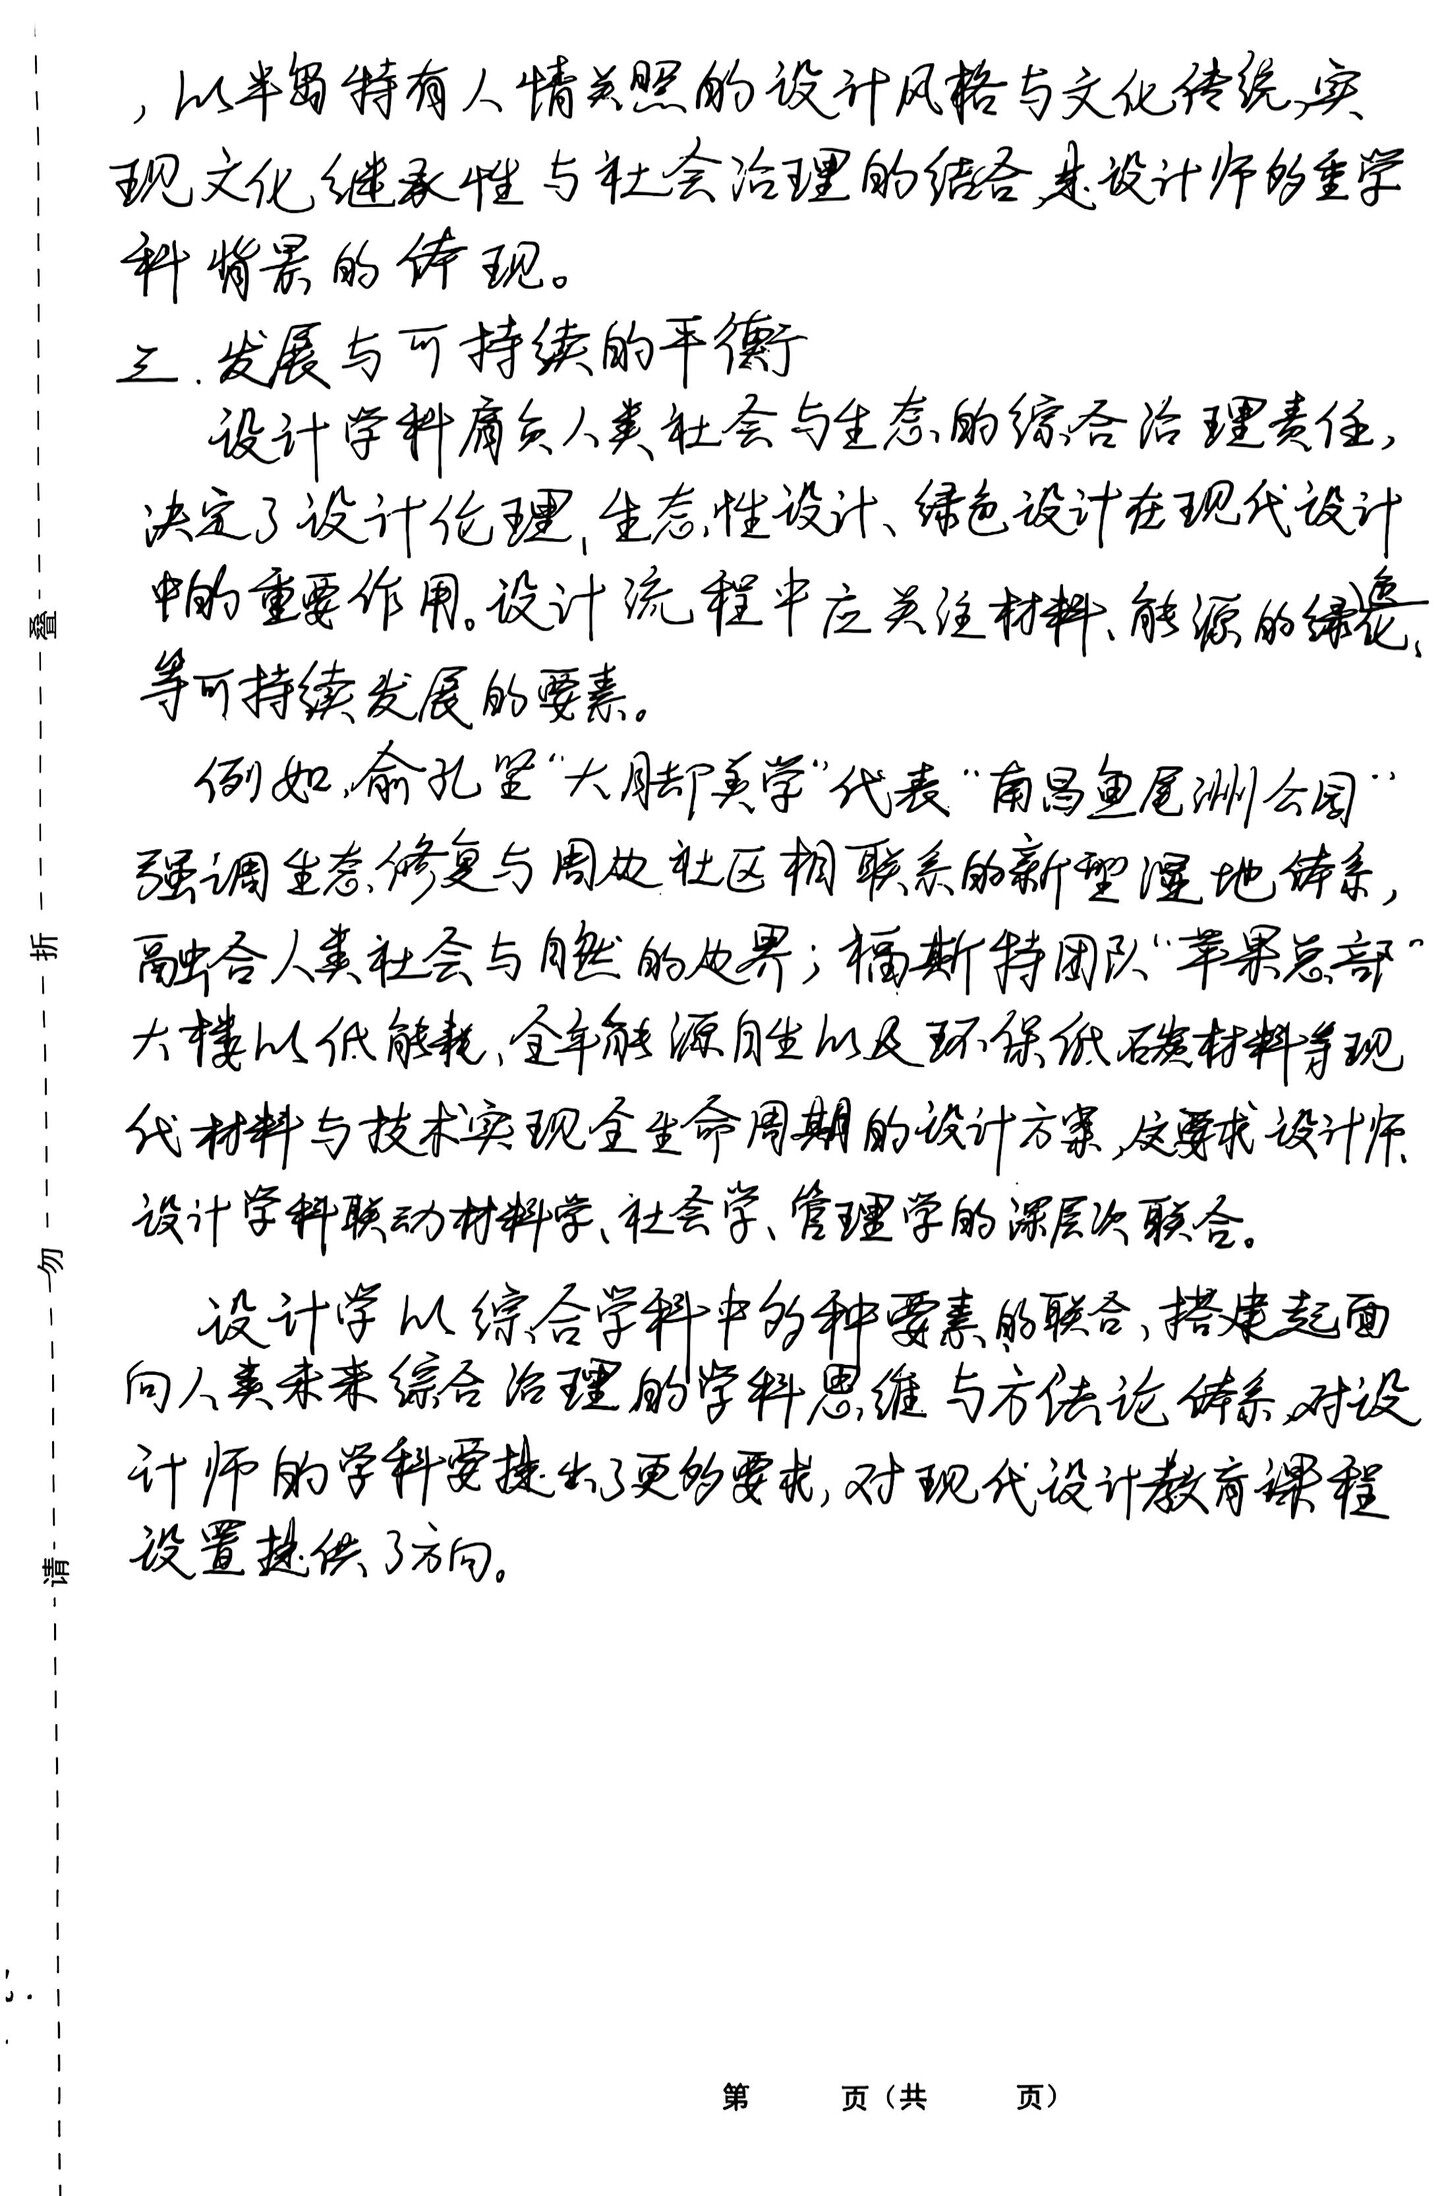 ，以半岛特有人情关照的设计风格与文化传统，实
现文化继承性与社会治理的结合，是设计师的重学
科背景的体现。
三．发展与可持续的平衡
设计学科肩负人类社会与生态的综合治理责任，
决定了设计伦理，生态性设计、绿色设计在现代设计
中的重要作用。设计流程中应关注材料、能源的绿色化、
等可持续发展的要素。
例如，俞孔坚“大脚美学”代表“南昌鱼尾洲公园”
强调生态修复与周边社区相联系的新型湿地体系，
融合人类社会与自然的边界；福斯特团队“苹果总部”
大楼以低能耗、全年能源自生以及环保低碳材料等现
代材料与技术实现全生命周期的设计方案，这要求设计师、
设计学科联动材料学、社会学、管理学的深层次联合。
设计学以综合学科中多种要素的联合，搭建起面
向人类未来综合治理的学科思维与方法论体系，对设
计师的学科要提出了更多要求，对现代设计教育课程
设置提供了方向。
叠
折
勿
请
第 页（共 页）